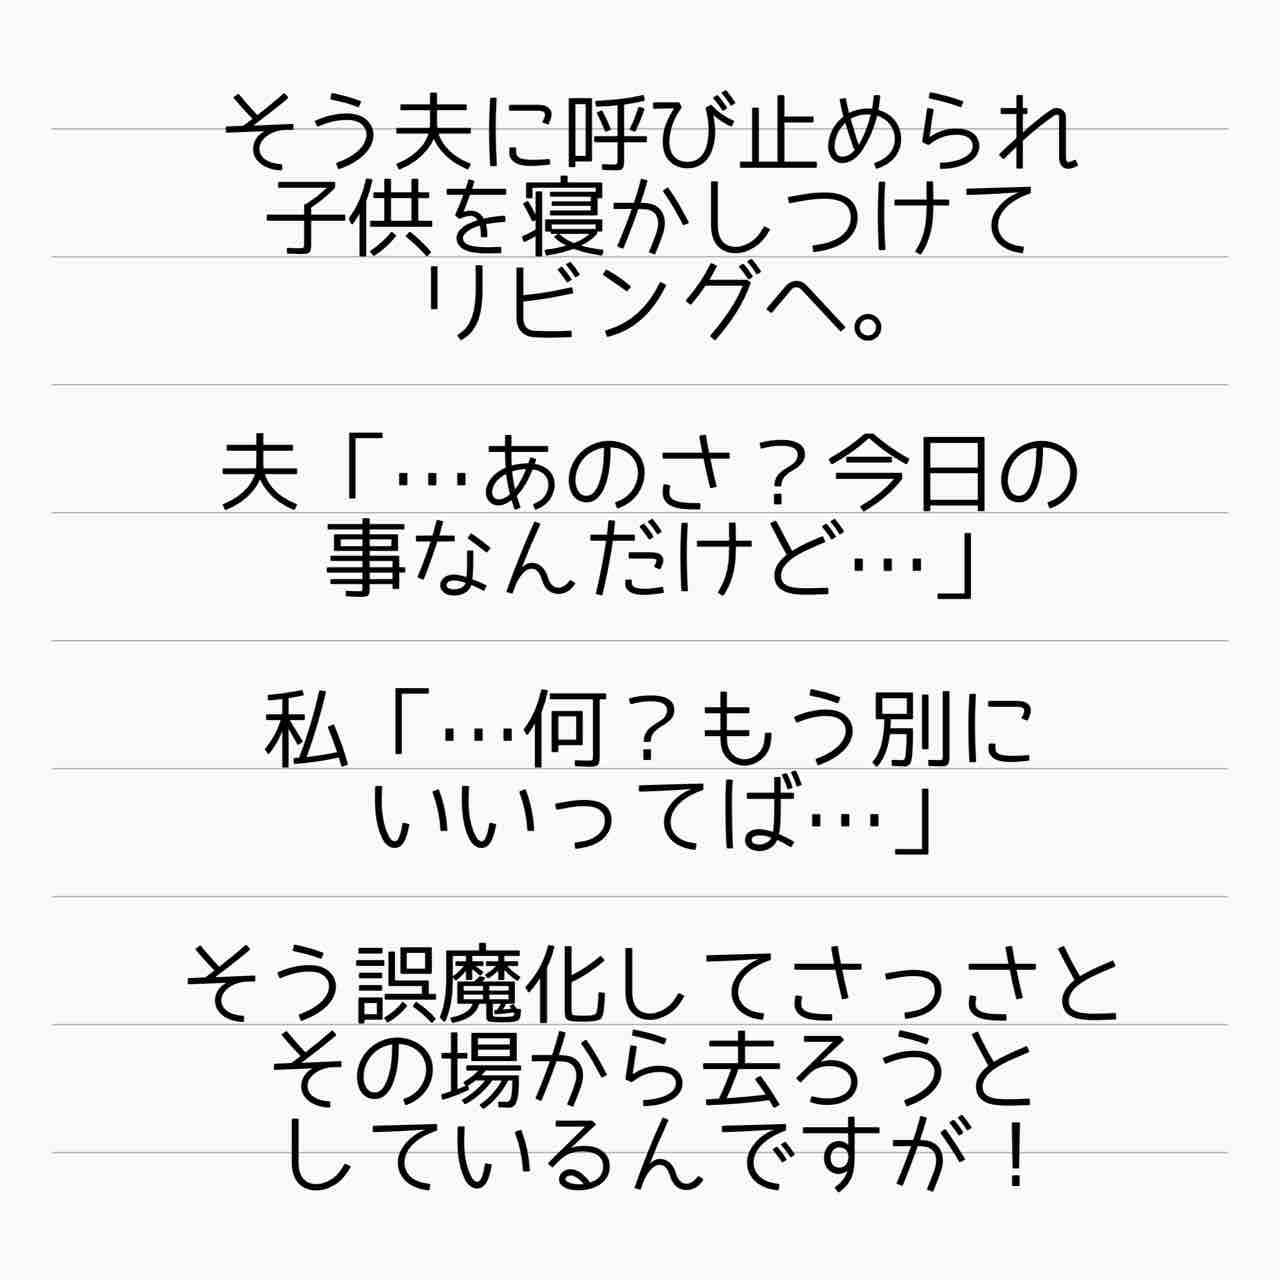 そう夫に呼び止められ
子供を寝かしつけて
リビングへ。
夫「…あのさ？今日の
事なんだけど…」
私「…何？もう別に
いいってば…」
そう誤魔化してさっさと
その場から去ろうと
しているんですが！